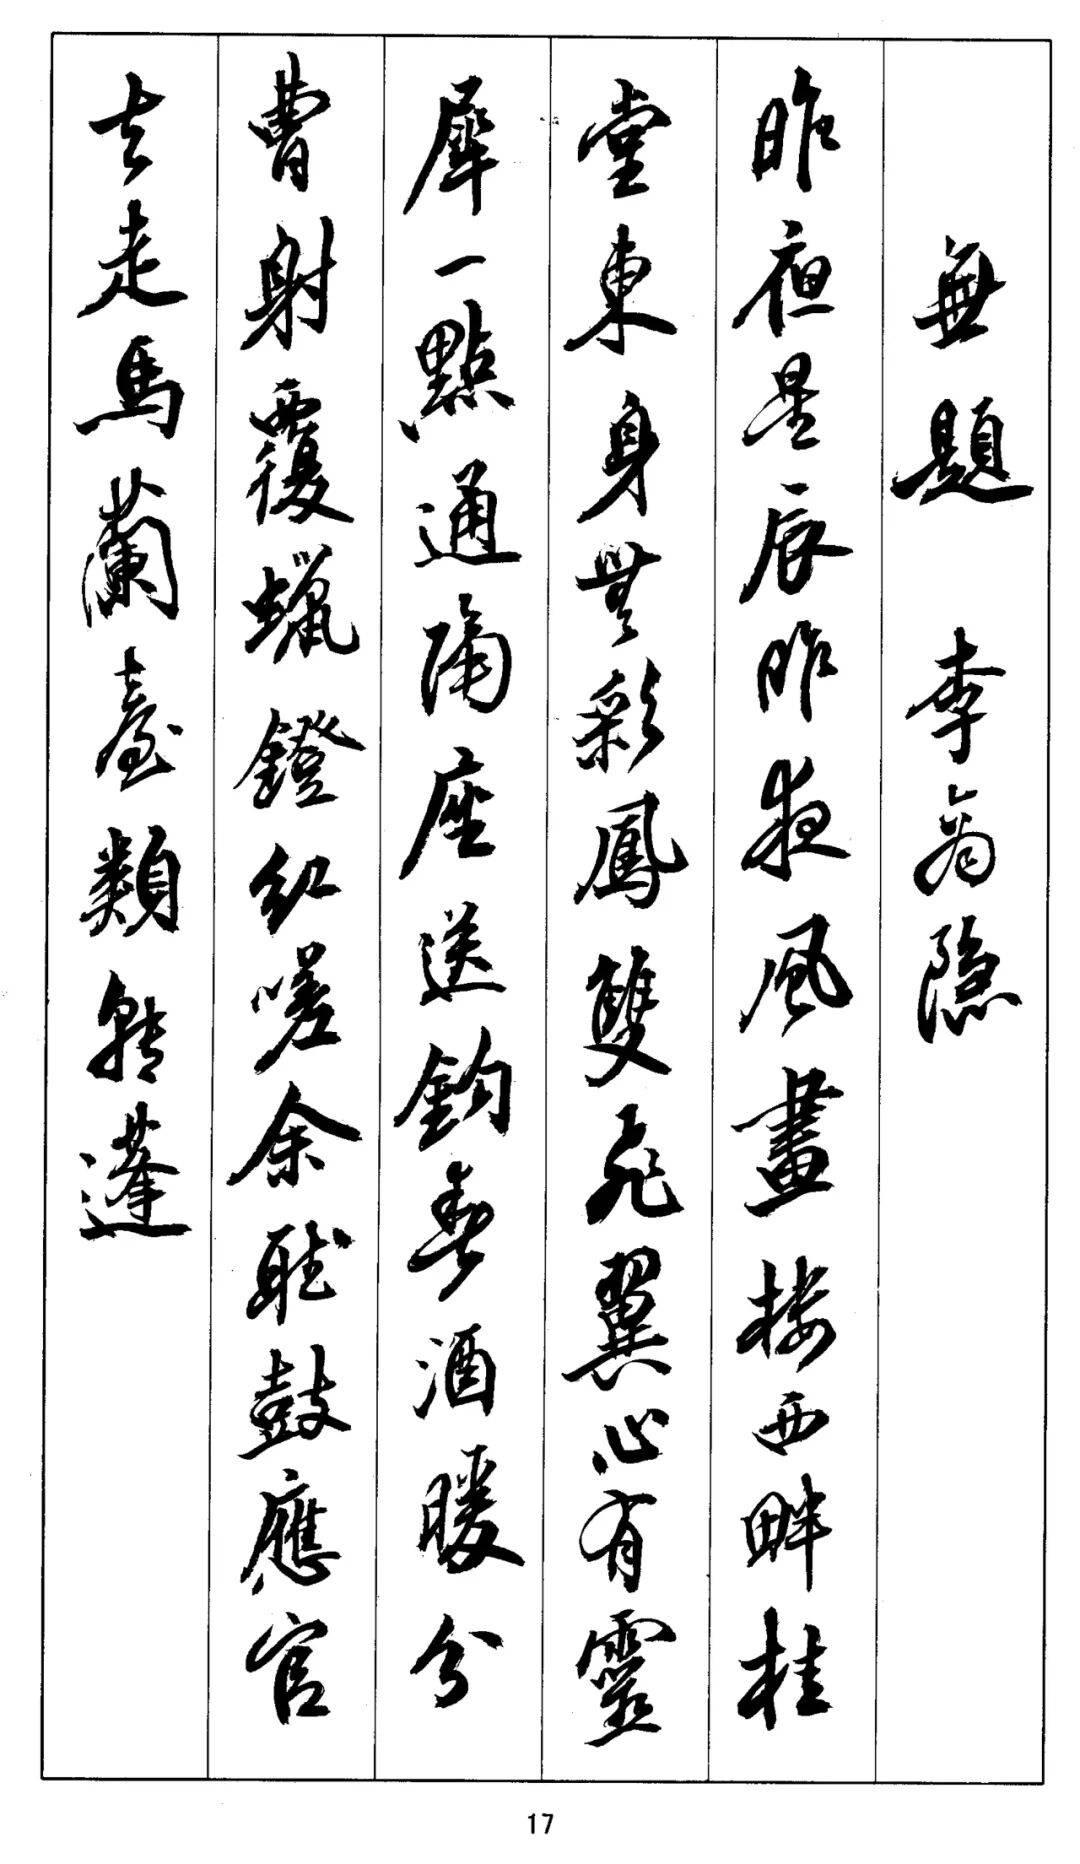 無題 李商隐
昨夜星辰昨夜風畫楼西畔桂
堂東身無彩鳳雙飛翼心有靈
犀一點通隔座送鈎春酒暖分
曹射覆蠟鐙紅嗟余聽鼓應官
去走馬蘭臺類轉蓬
17